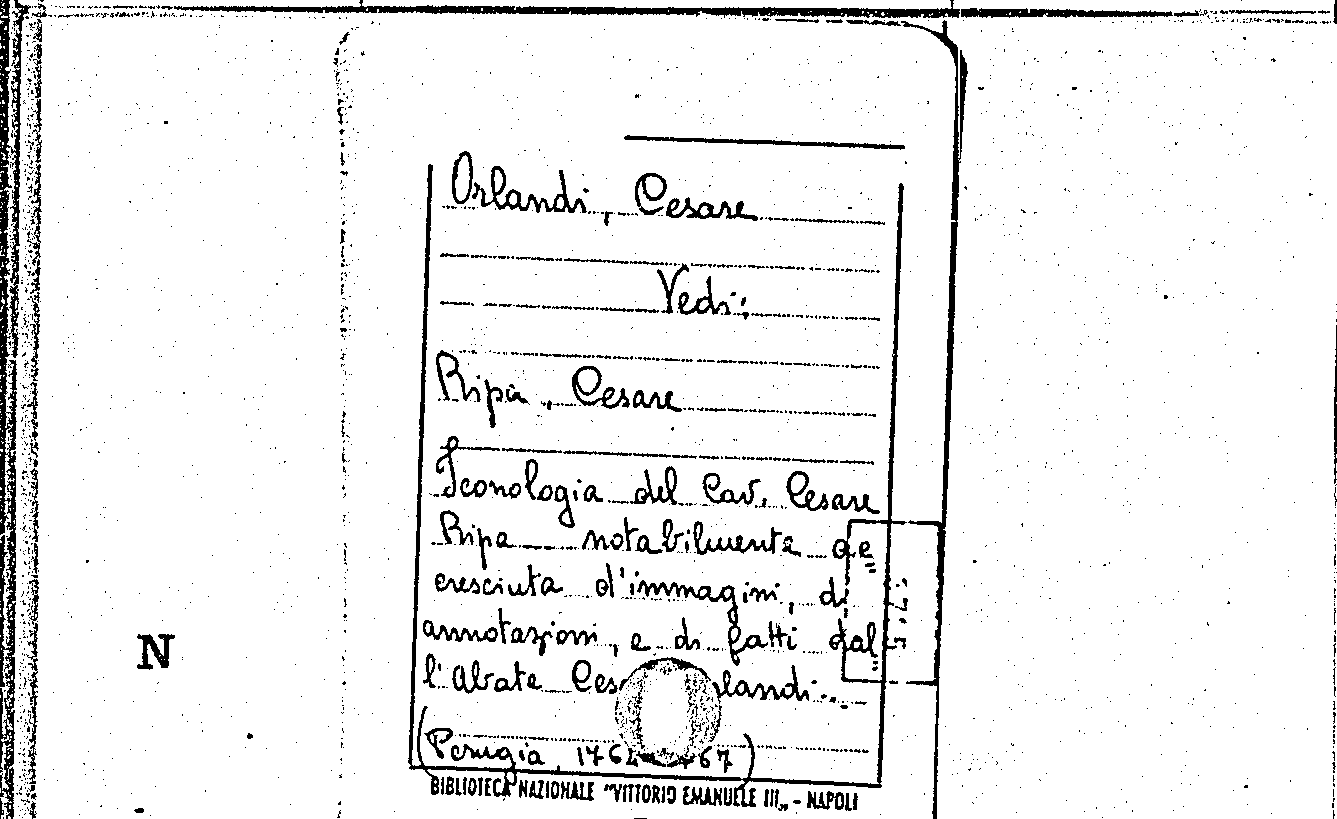 Orlandi, Cesare
Vedi:
Ripa, Cesare
Iconologia del Cav. Cesare
Ripa notabilmente ac„
cresciuta d'immagini, di
annotazioni, e di fatti dal„
l'Abate Ces rlandi...
(Perugia, 1764 67)
BIBLIOTECA NAZIONALE "VITTORIO EMANUELE III„ - NAPOLI
N